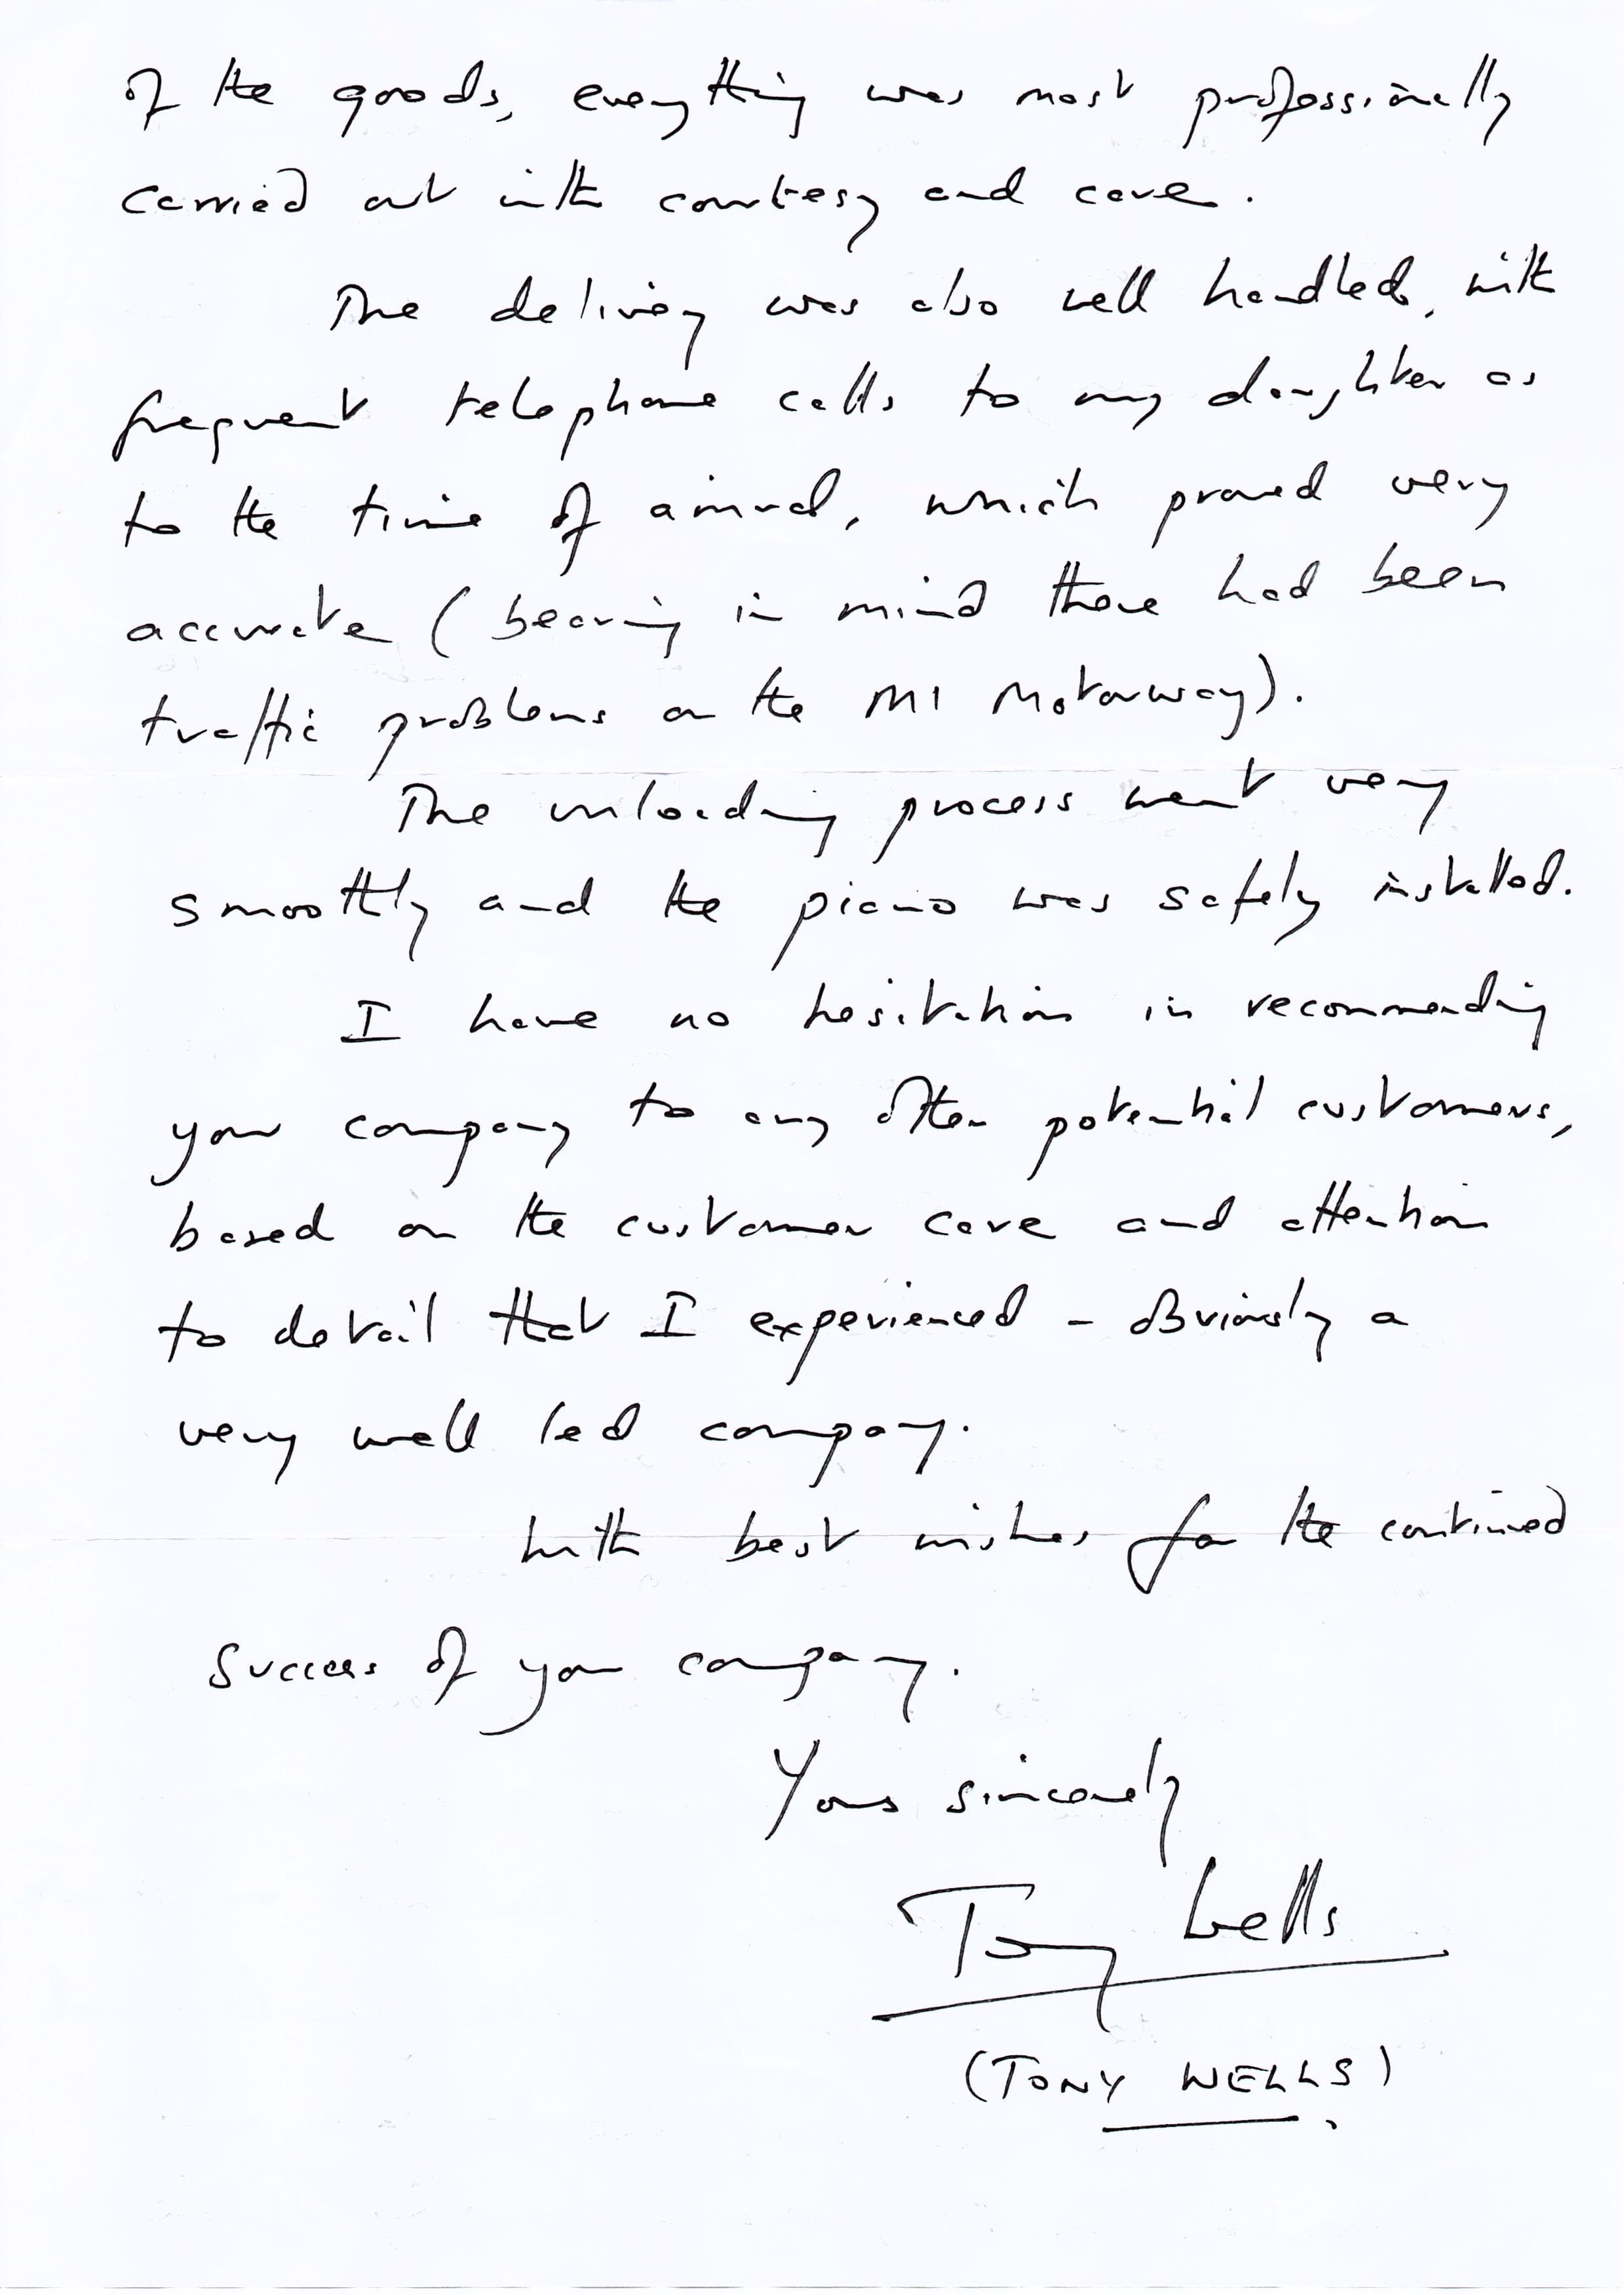 of the goods, everything was most professionally
carried out with courtesy and care.
The delivery was also well handled, with
frequent telephone calls to my daughter as
to the time of arrival, which proved very
accurate (bearing in mind there had been
traffic problems on the M1 Motorway).
The unloading process went very
smoothly and the piano was safely installed.
I have no hesitation in recommending
your company to any other potential customers,
based on the customer care and attention
to detail that I experienced - obviously a
very well led company.
With best wishes for the continued
success of your company.
Yours sincerely
Tony Wells
(TONY WELLS)